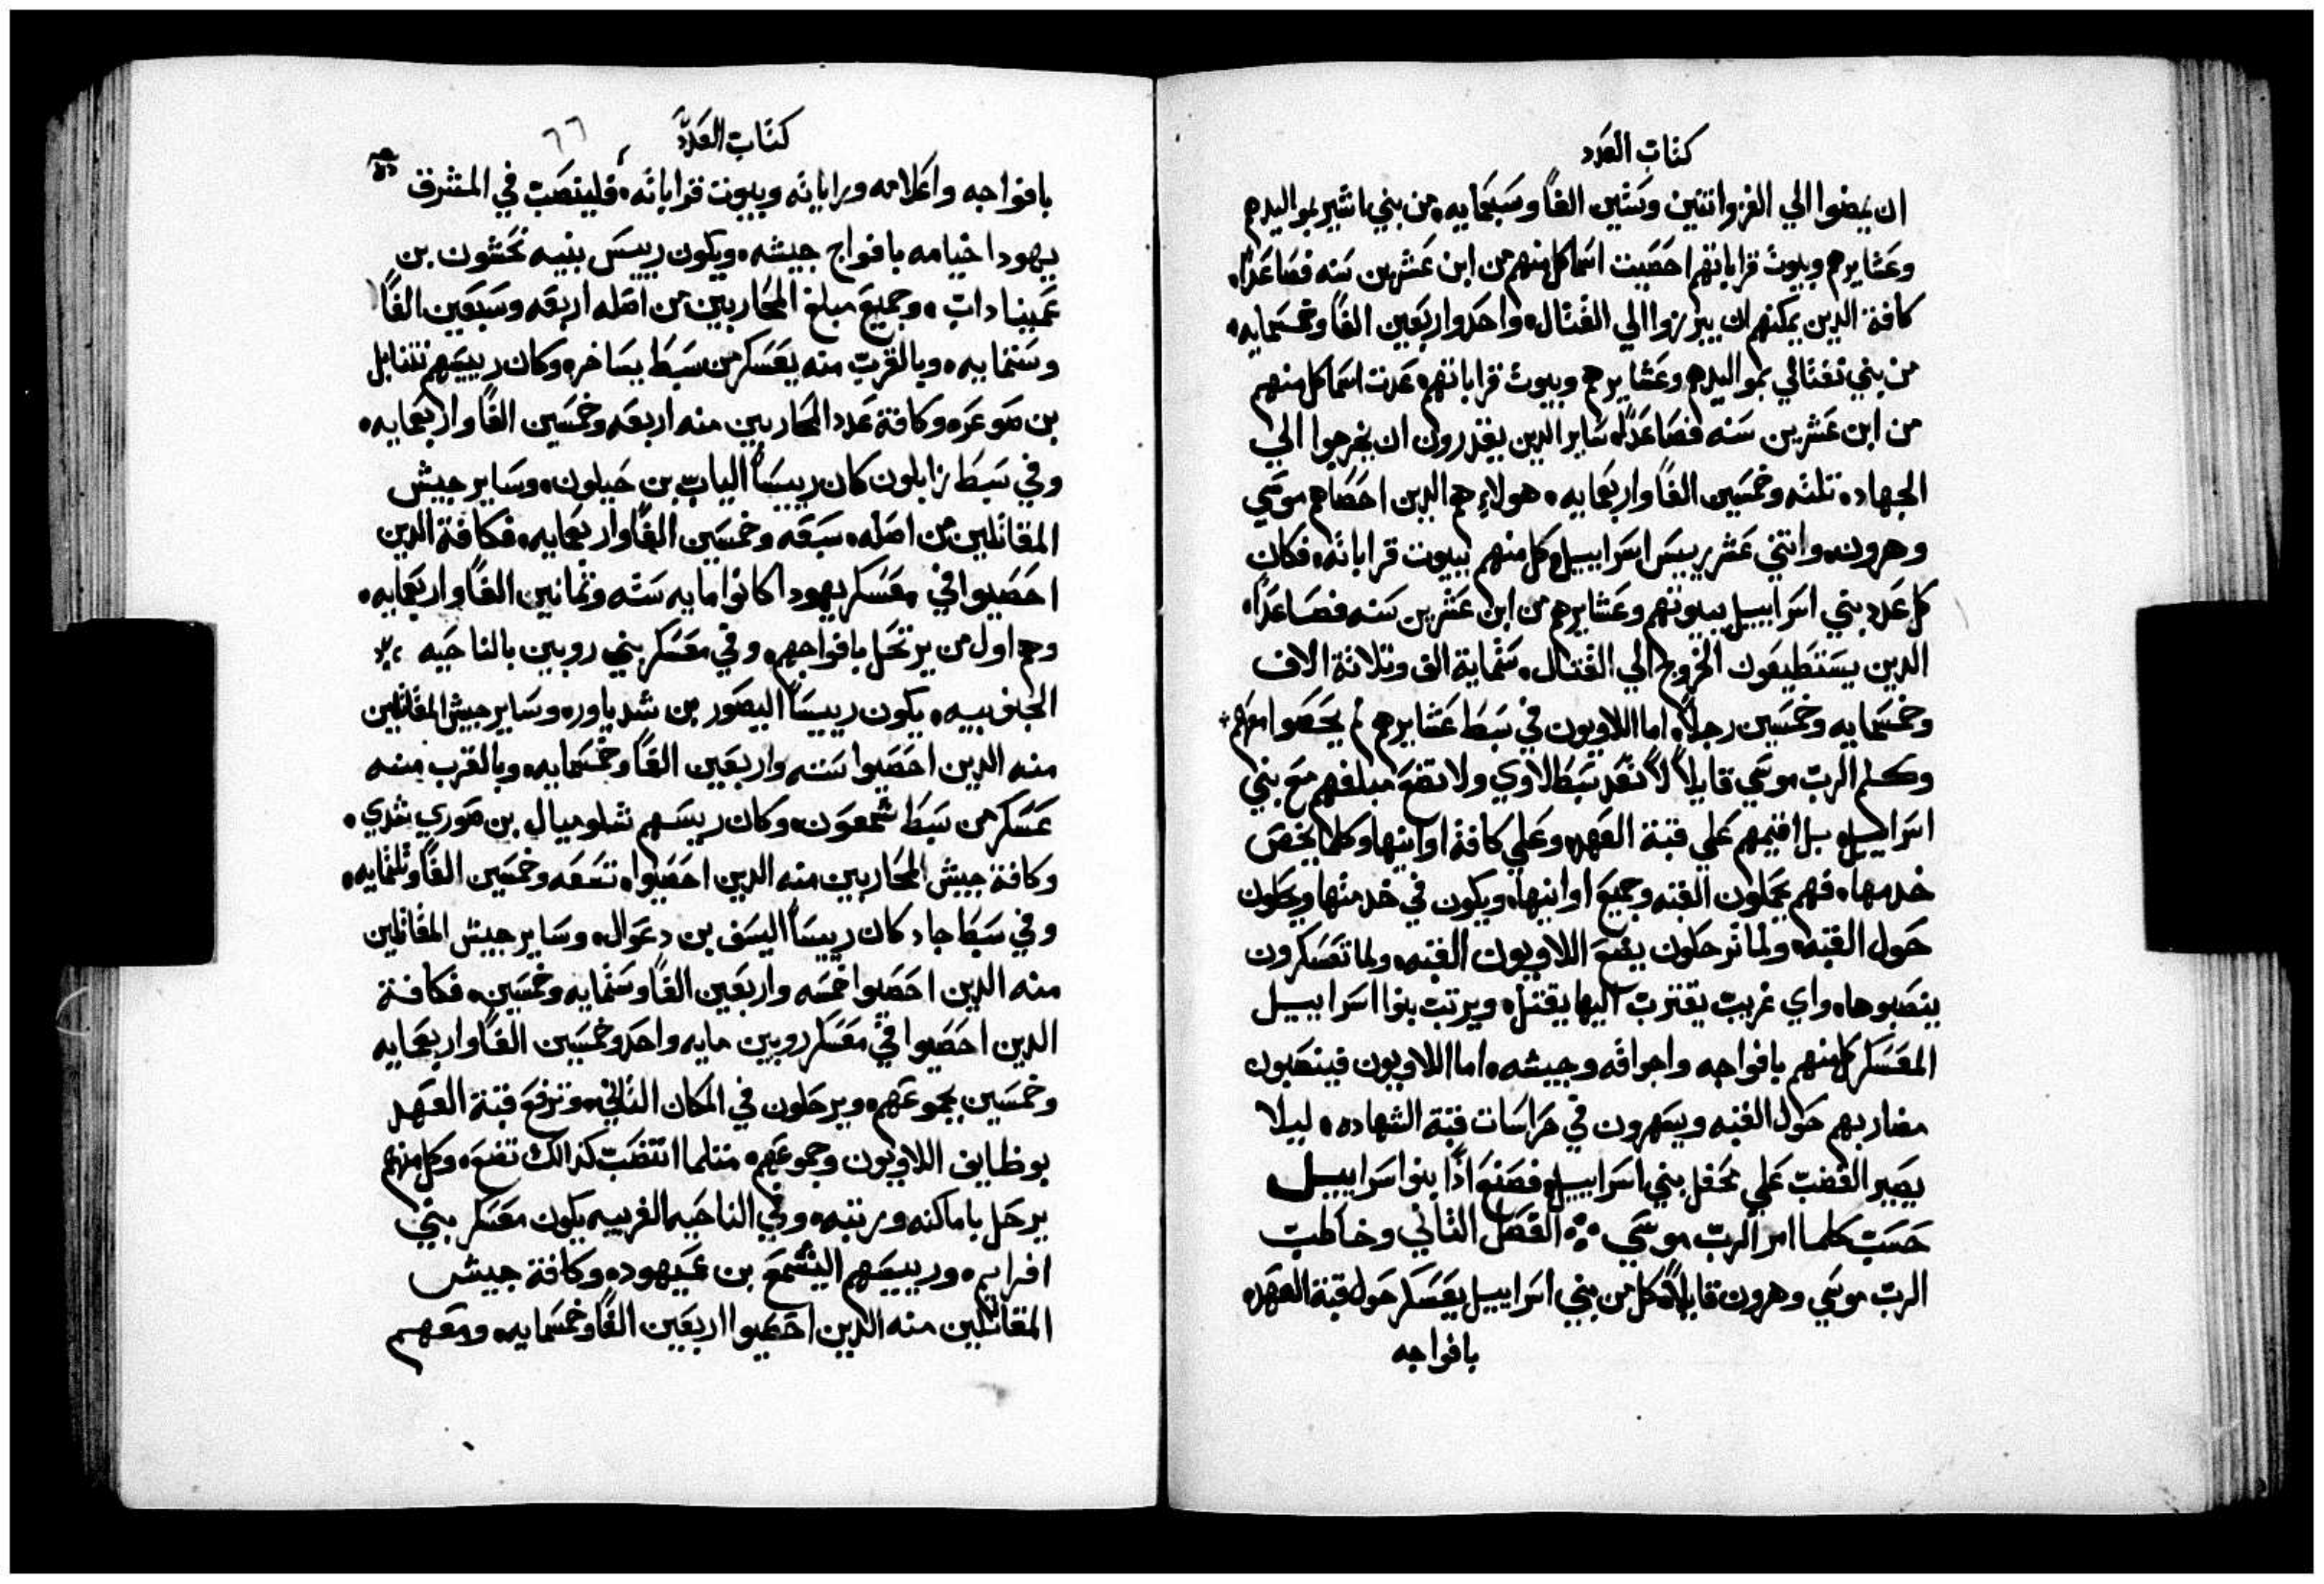 كتاب العدد
ان يمضوا الي الغزوا اثنين وستين الفاً وسبعمايه، من بني اشير بمواليدهم
وعشايرهم وبيوت قراباتهم احصيت اسما كل منهم من ابن عشرين سنه فصاعداً،
كافة الدين يمكنهم ان يبرزوا الي القتال، واحد واربعين الفاً وخمسمايه،
من بني نفتالي بمواليدهم وعشايرهم وبيوت قراباتهم، عدت اسما كل منهم
من ابن عشرين سنه فصاعداً، ساير الدين يقدرون ان يخرجوا الي
الجهاد، تلته وخمسين الفاً واربعمايه، هولاء هم الدين احصاهم موسي
وهرون، واتني عشر رييس اسراييل، وكل منهم ببيوت قراباته، فكان
كل عدد بني اسراييل ببيوتهم وعشايرهم من ابن عشرين سنه فصاعداً،
الدين يستطيعون الخروج الي القتال، ستماية الف وتلاتة الاف
وخمسمايه وخمسين رجلاً، اما اللاويون في سبط عشايرهم لم يحصوا معهم
وكلم الرب موسي قايلاً لا تعد سبط لاوي ولا تضع مبلغهم مع بني
اسراييل، بل اقيمهم علي قبة العهد، وعلي كافة اوانيها وكلما يخص
خدمها، فهم يحملون القبه وجميع اوانيها، ويكون في خدمتها ويحلون
حول القبه، ولما ترحلون يضع اللاويون القبه، ولما تعسكرون
ينصبوها، واي غريب يقترب اليها يقتل، ويرتب بنوا اسراييل
المعسكر كل منهم بافواجه واجواقه وجيشه، اما اللاويون فينصبون
مضاربهم حول القبه ويسهرون في حراسات قبة الشهاده، ليلا
يصير الغضب علي محفل بني اسراييل، فصنع اذاً بنوا اسراييل
حسب كلما امر الرب موسي ⁘ الفصل التاني وخاطب
الرب موسي وهرون قايلاً، كل من بني اسراييل يعسكر حول قبة العهد،
بافواجه
كتاب العدد ٦٦
بافواجه واعلامه وراياته وبيوت قراباته، فلينصب في المشرق
يهودا خيامه بافواج جيشه، ويكون رييس بنيه نحشون بن
عميناداب، وجميع مبلغ المحاربين من اصله اربعه وسبعين الفاً
وستمايه، وبالقرب منه يعسكر من سبط يساخر، وكان رييسهم نتنايل
بن صوعر، وكافة عدد المحاربين منه اربعه وخمسين الفاً واربعمايه،
وفي سبط زابلون كان رييساً الياب بن حيلون، وساير جيش
المقاتلين من اصله، سبعه وخمسين الفاً واربعمايه، فكافة الدين
احصيوا في معسكر يهودا كانوا مايه سته وتمانين الفاً واربعمايه،
وهم اول من يرتحل بافواجهم، وفي معسكر بني روبين بالناحيه
الجنوبيه، يكون رييساً اليصور بن شدياور، وساير جيش المقاتلين
منه الدين احصيوا سته واربعين الفاً وخمسمايه، وبالقرب منه
عسكر من سبط شمعون، وكان رييسهم شلوميال بن صوري شدي،
وكافة جيش المحاربين منه الدين احصيوا، تسعه وخمسين الفاً وتلتمايه،
وفي سبط جاد كان رييساً اليسف بن دعوال، وساير جيش المقاتلين
منه الدين احصيوا خمسه واربعين الفاً وستمايه وخمسين، فكافة
الدين احصيوا في معسكر روبين مايه واحد وخمسين الفاً واربعمايه
وخمسين بجموعهم، ويرحلون في المكان التاني، وترفع قبة العهد
بوظايف اللاويون وجموعهم، متلما انتصبت كذالك تضع، وكل منهم
يرحل باماكنه ورتبه، وفي الناحيه الغربيه يكون معسكر بني
افرايم، ورييسهم اليشمع بن عميهود، وكافة جيش
المقاتلين منه الدين احصيوا اربعين الفاً وخمسمايه، ومعهم